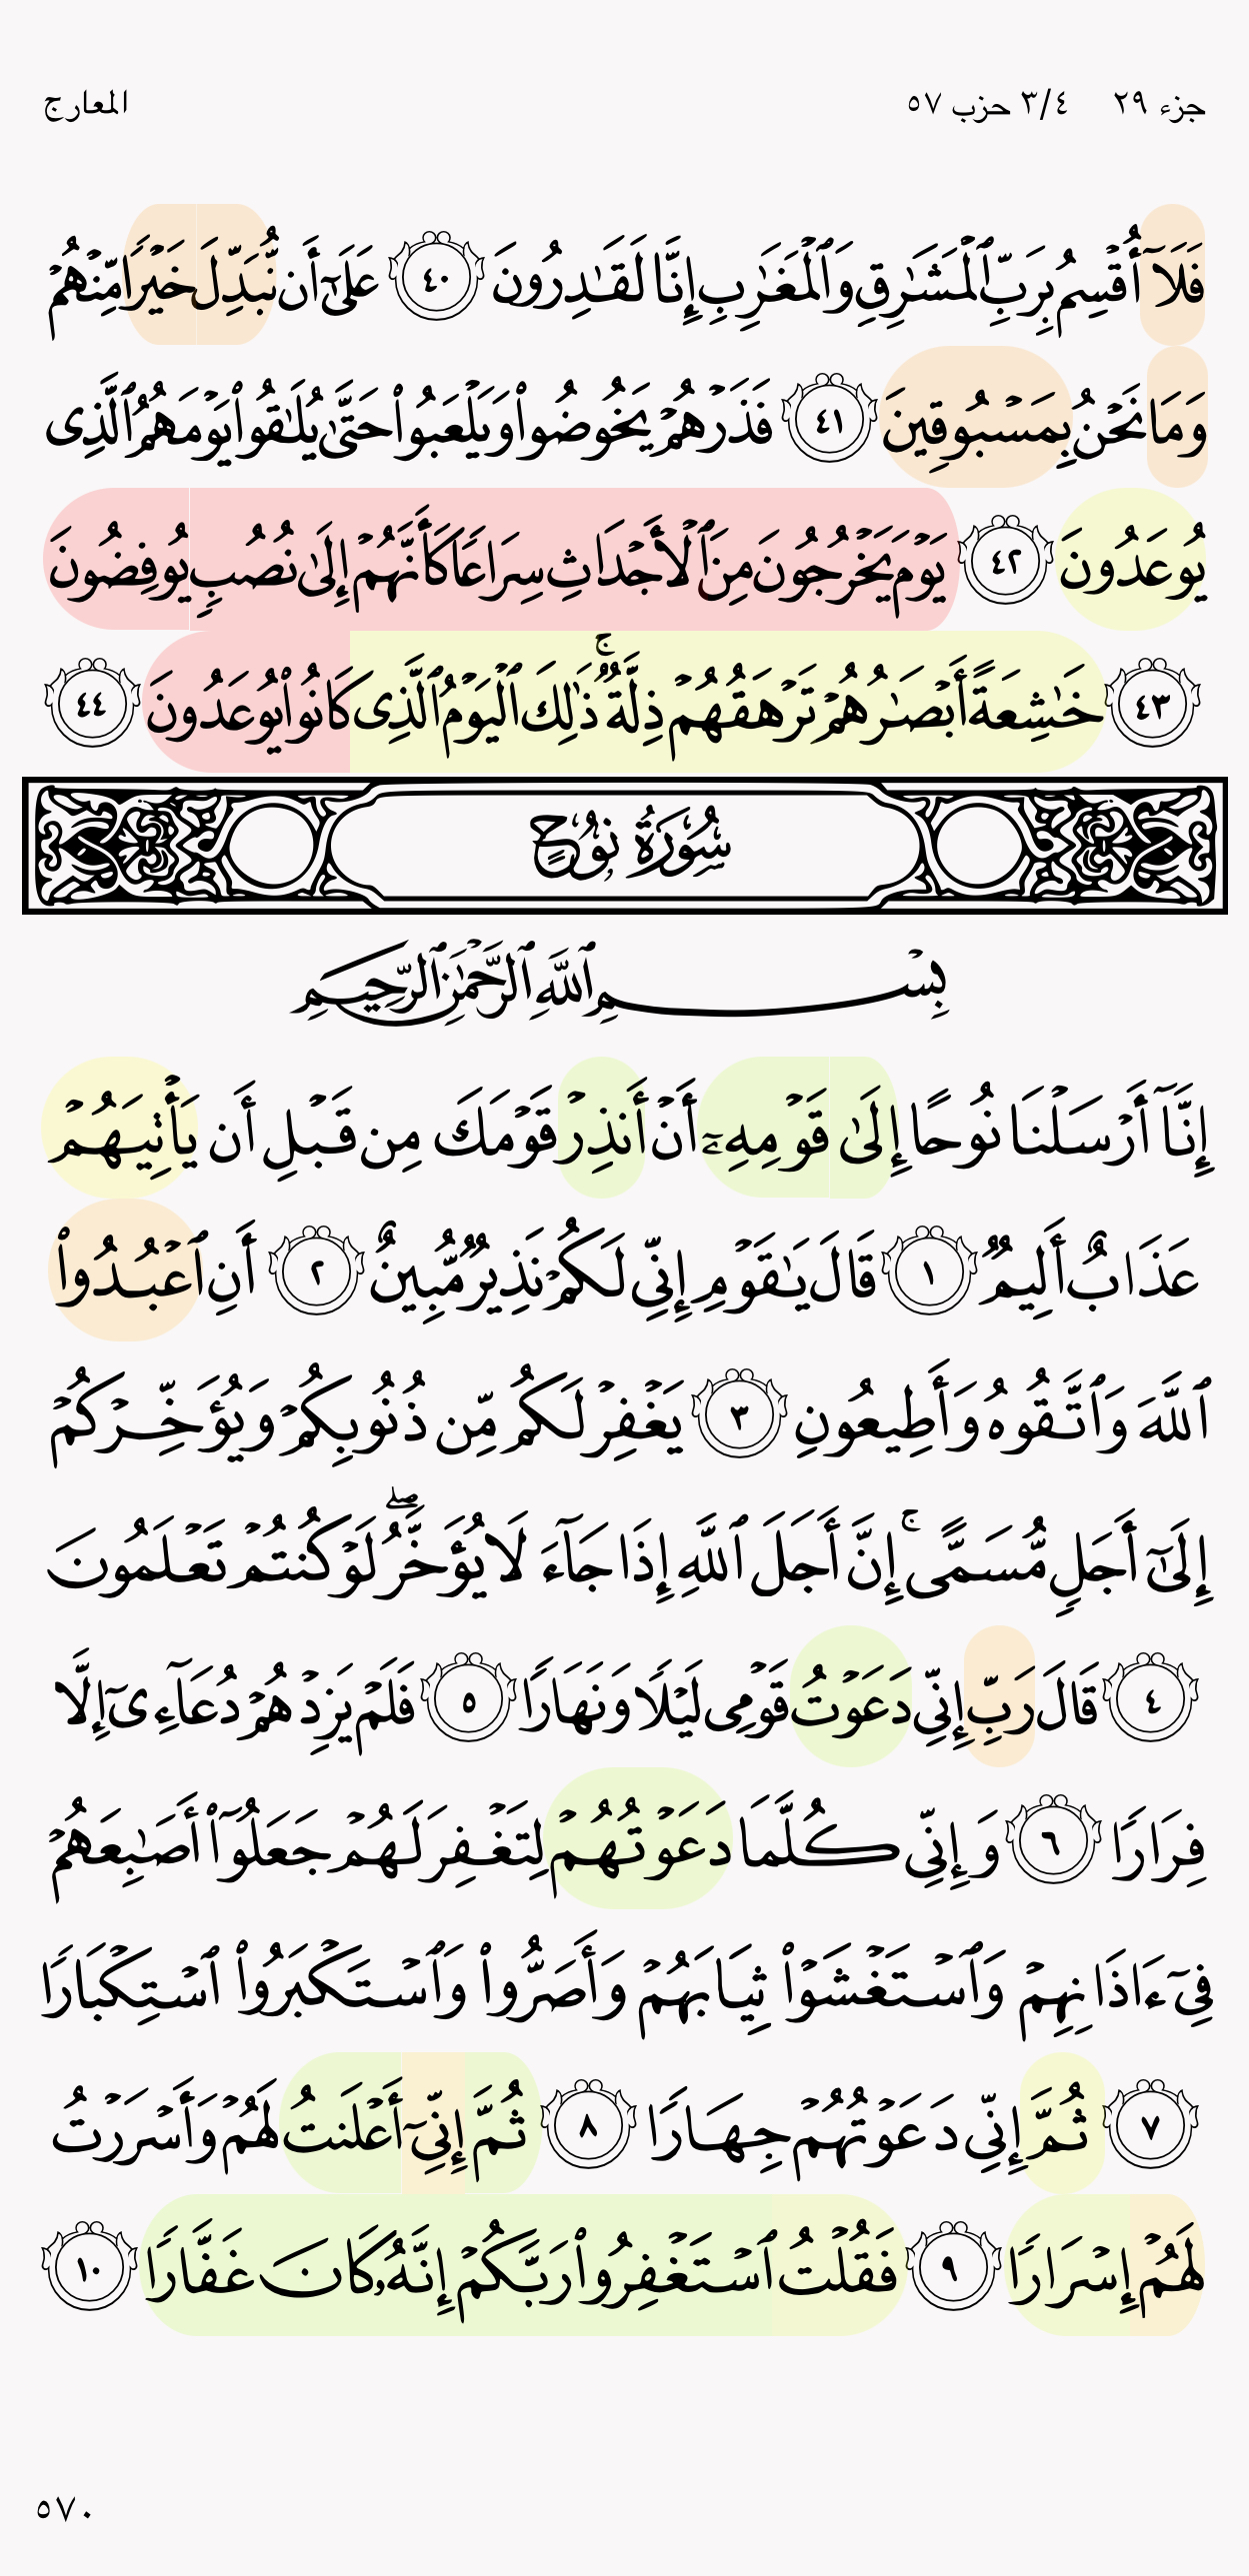 جزء ٢٩ ٣/٤ حزب ٥٧ المعارج
فَلَآ أُقْسِمُ بِرَبِّ ٱلْمَشَٰرِقِ وَٱلْمَغَٰرِبِ إِنَّا لَقَٰدِرُونَ ٤٠ عَلَىٰٓ أَن نُّبَدِّلَ خَيْرًا مِّنْهُمْ
وَمَا نَحْنُ بِمَسْبُوقِينَ ٤١ فَذَرْهُمْ يَخُوضُوا۟ وَيَلْعَبُوا۟ حَتَّىٰ يُلَٰقُوا۟ يَوْمَهُمُ ٱلَّذِى
يُوعَدُونَ ٤٢ يَوْمَ يَخْرُجُونَ مِنَ ٱلْأَجْدَاثِ سِرَاعًا كَأَنَّهُمْ إِلَىٰ نُصُبٍ يُوفِضُونَ
٤٣ خَٰشِعَةً أَبْصَٰرُهُمْ تَرْهَقُهُمْ ذِلَّةٌ ۚ ذَٰلِكَ ٱلْيَوْمُ ٱلَّذِى كَانُوا۟ يُوعَدُونَ ٤٤
سُورَةُ نُوحٍ
بِسْمِ ٱللَّهِ ٱلرَّحْمَٰنِ ٱلرَّحِيمِ
إِنَّآ أَرْسَلْنَا نُوحًا إِلَىٰ قَوْمِهِۦٓ أَنْ أَنذِرْ قَوْمَكَ مِن قَبْلِ أَن يَأْتِيَهُمْ
عَذَابٌ أَلِيمٌ ١ قَالَ يَٰقَوْمِ إِنِّى لَكُمْ نَذِيرٌ مُّبِينٌ ٢ أَنِ ٱعْبُدُوا۟
ٱللَّهَ وَٱتَّقُوهُ وَأَطِيعُونِ ٣ يَغْفِرْ لَكُم مِّن ذُنُوبِكُمْ وَيُؤَخِّرْكُمْ
إِلَىٰٓ أَجَلٍ مُّسَمًّى ۚ إِنَّ أَجَلَ ٱللَّهِ إِذَا جَآءَ لَا يُؤَخَّرُ ۖ لَوْ كُنتُمْ تَعْلَمُونَ
٤ قَالَ رَبِّ إِنِّى دَعَوْتُ قَوْمِى لَيْلًا وَنَهَارًا ٥ فَلَمْ يَزِدْهُمْ دُعَآءِىٓ إِلَّا
فِرَارًا ٦ وَإِنِّى كُلَّمَا دَعَوْتُهُمْ لِتَغْفِرَ لَهُمْ جَعَلُوٓا۟ أَصَٰبِعَهُمْ
فِىٓ ءَاذَانِهِمْ وَٱسْتَغْشَوْا۟ ثِيَابَهُمْ وَأَصَرُّوا۟ وَٱسْتَكْبَرُوا۟ ٱسْتِكْبَارًا
٧ ثُمَّ إِنِّى دَعَوْتُهُمْ جِهَارًا ٨ ثُمَّ إِنِّىٓ أَعْلَنتُ لَهُمْ وَأَسْرَرْتُ
لَهُمْ إِسْرَارًا ٩ فَقُلْتُ ٱسْتَغْفِرُوا۟ رَبَّكُمْ إِنَّهُۥ كَانَ غَفَّارًا ١٠
٥٧٠